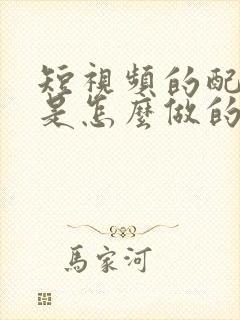 短視頻的配
是怎麼做的
馬家河